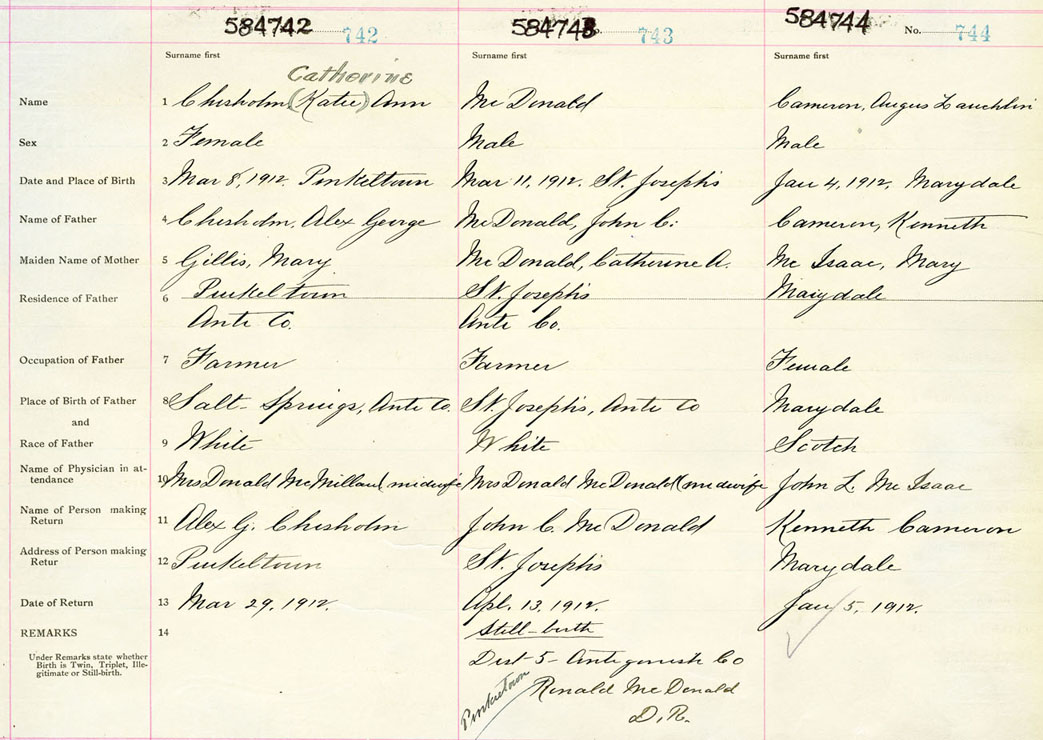 584742 742 584743 No. 743 584744 No. 744
Surname first Surname first Surname first
Catherine
Name 1 Chisholm (Katie) Ann Mc Donald Cameron, Angus Lauchlin
Sex 2 Female Male Male
Date and Place of Birth 3 Mar 8, 1912. Pinkeltown Mar 11, 1912. St. Josephs Jan 4, 1912. Marydale
Name of Father 4 Chisholm, Alex George McDonald, John C. Cameron, Kenneth
Maiden Name of Mother 5 Gillis, Mary McDonald, Catherine A. Mc Isaac, Mary
Residence of Father 6 Pinkeltown St. Josephs Marydale
Ante Co. Ante Co.
Occupation of Father 7 Farmer Farmer Female
Place of Birth of Father 8 Salt Springs, Ante Co. St. Josephs, Ante Co Marydale
and
Race of Father 9 White White Scotch
Name of Physician in at-
tendance 10 Mrs Donald McMillan (midwife Mrs Donald McDonald (midwife John L. Mc Isaac
Name of Person making
Return 11 Alex G. Chisholm John C. McDonald Kenneth Cameron
Address of Person making
Retur 12 Pinkeltown St. Josephs Marydale
Date of Return 13 Mar 29, 1912. Apl. 13, 1912. Jan 5, 1912.
REMARKS 14 Still-birth
Under Remarks state whether
Birth is Twin, Triplet, Ille-
gitimate or Still-birth.
Dist 5 - Antigonish Co
Pinkietown Ronald McDonald
D.R.